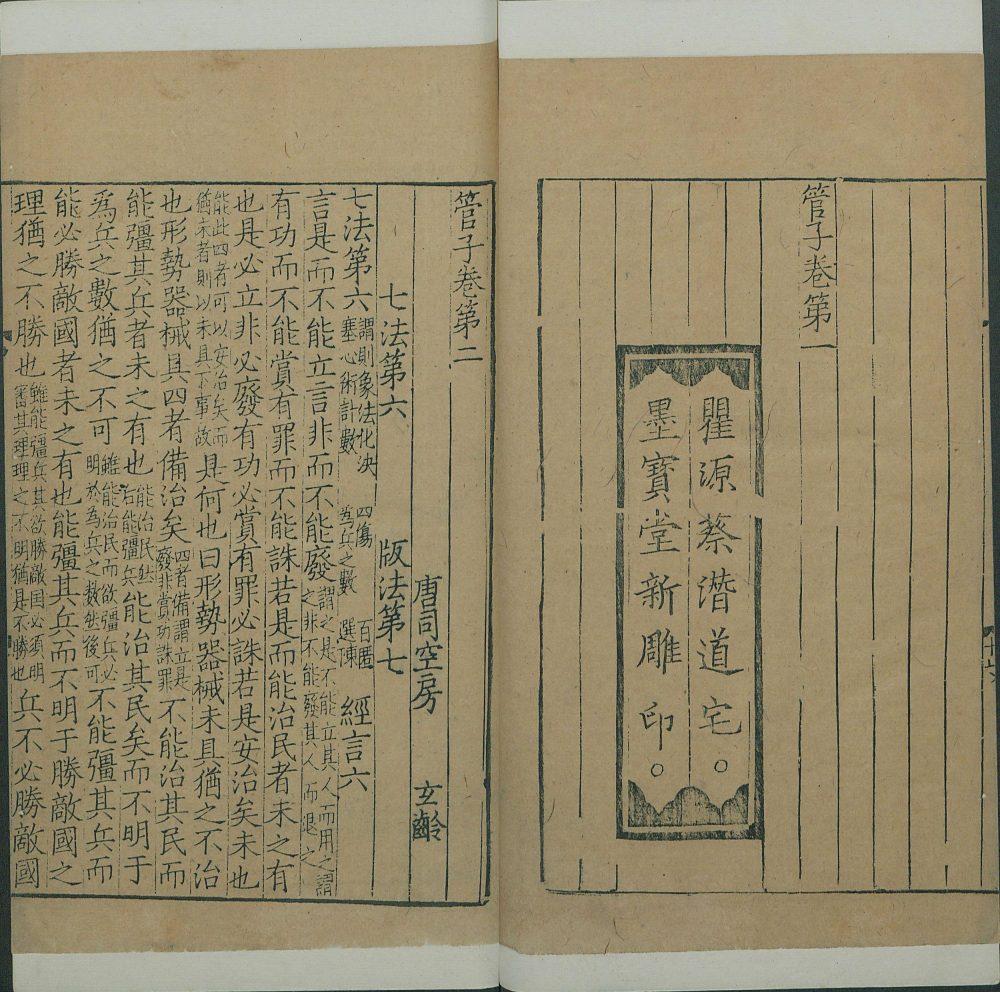 管子卷第一
瞿源蔡潛道宅
墨寶堂新雕印
管子卷第二
唐司空房 玄齡
七法第六 版法第七
七法第六 謂則象法化決塞心術計數 四傷 百匿 爲兵之數 選陳 經言六
言是而不能立言非而不能廢 謂之是不能立其人而用之謂之非不能廢其人而退之
有功而不能賞有罪而不能誅若是而能治民者未之有
也是必立非必廢有功必賞有罪必誅若是安治矣未也
能此四者可以安治矣而猶未者則以未具下事故 是何也曰形勢器械未具猶之不治
也形勢器械具四者備治矣 四者備謂立是廢非賞功誅罪 不能治其民而
能彊其兵者未之有也 能治民然后能彊兵 能治其民矣而不明于
爲兵之數猶之不可 雖能治民而欲彊兵必明於爲兵之數然後可 不能彊其兵而
能必勝敵國者未之有也能彊其兵而不明于勝敵國之
理猶之不勝也 雖能彊兵其欲勝敵国必須明審其理理之不明猶是不勝也 兵不必勝敵國